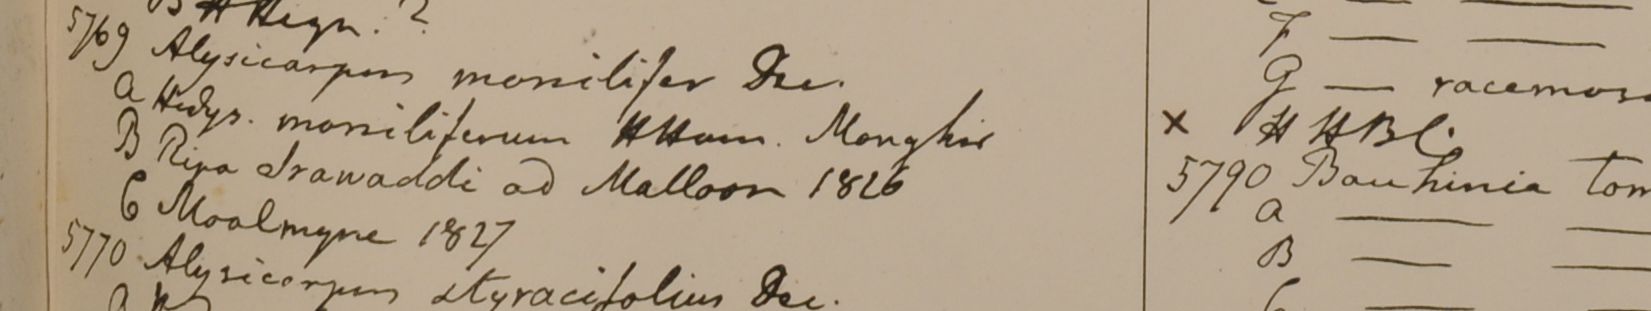 B H Heyn. ?
5769 Alysicarpus monilifer Dec.
a Hedys. moniliferum HHam. Monghir
B Ripa Irawaddi ad Malloon 1826
C Moalmyne 1827
5770 Alysicarpus styracifolius Dec.
a
F — —
G — racemosa
x H HBC.
5790 Bauhinia tom
a — —
B — —
C —